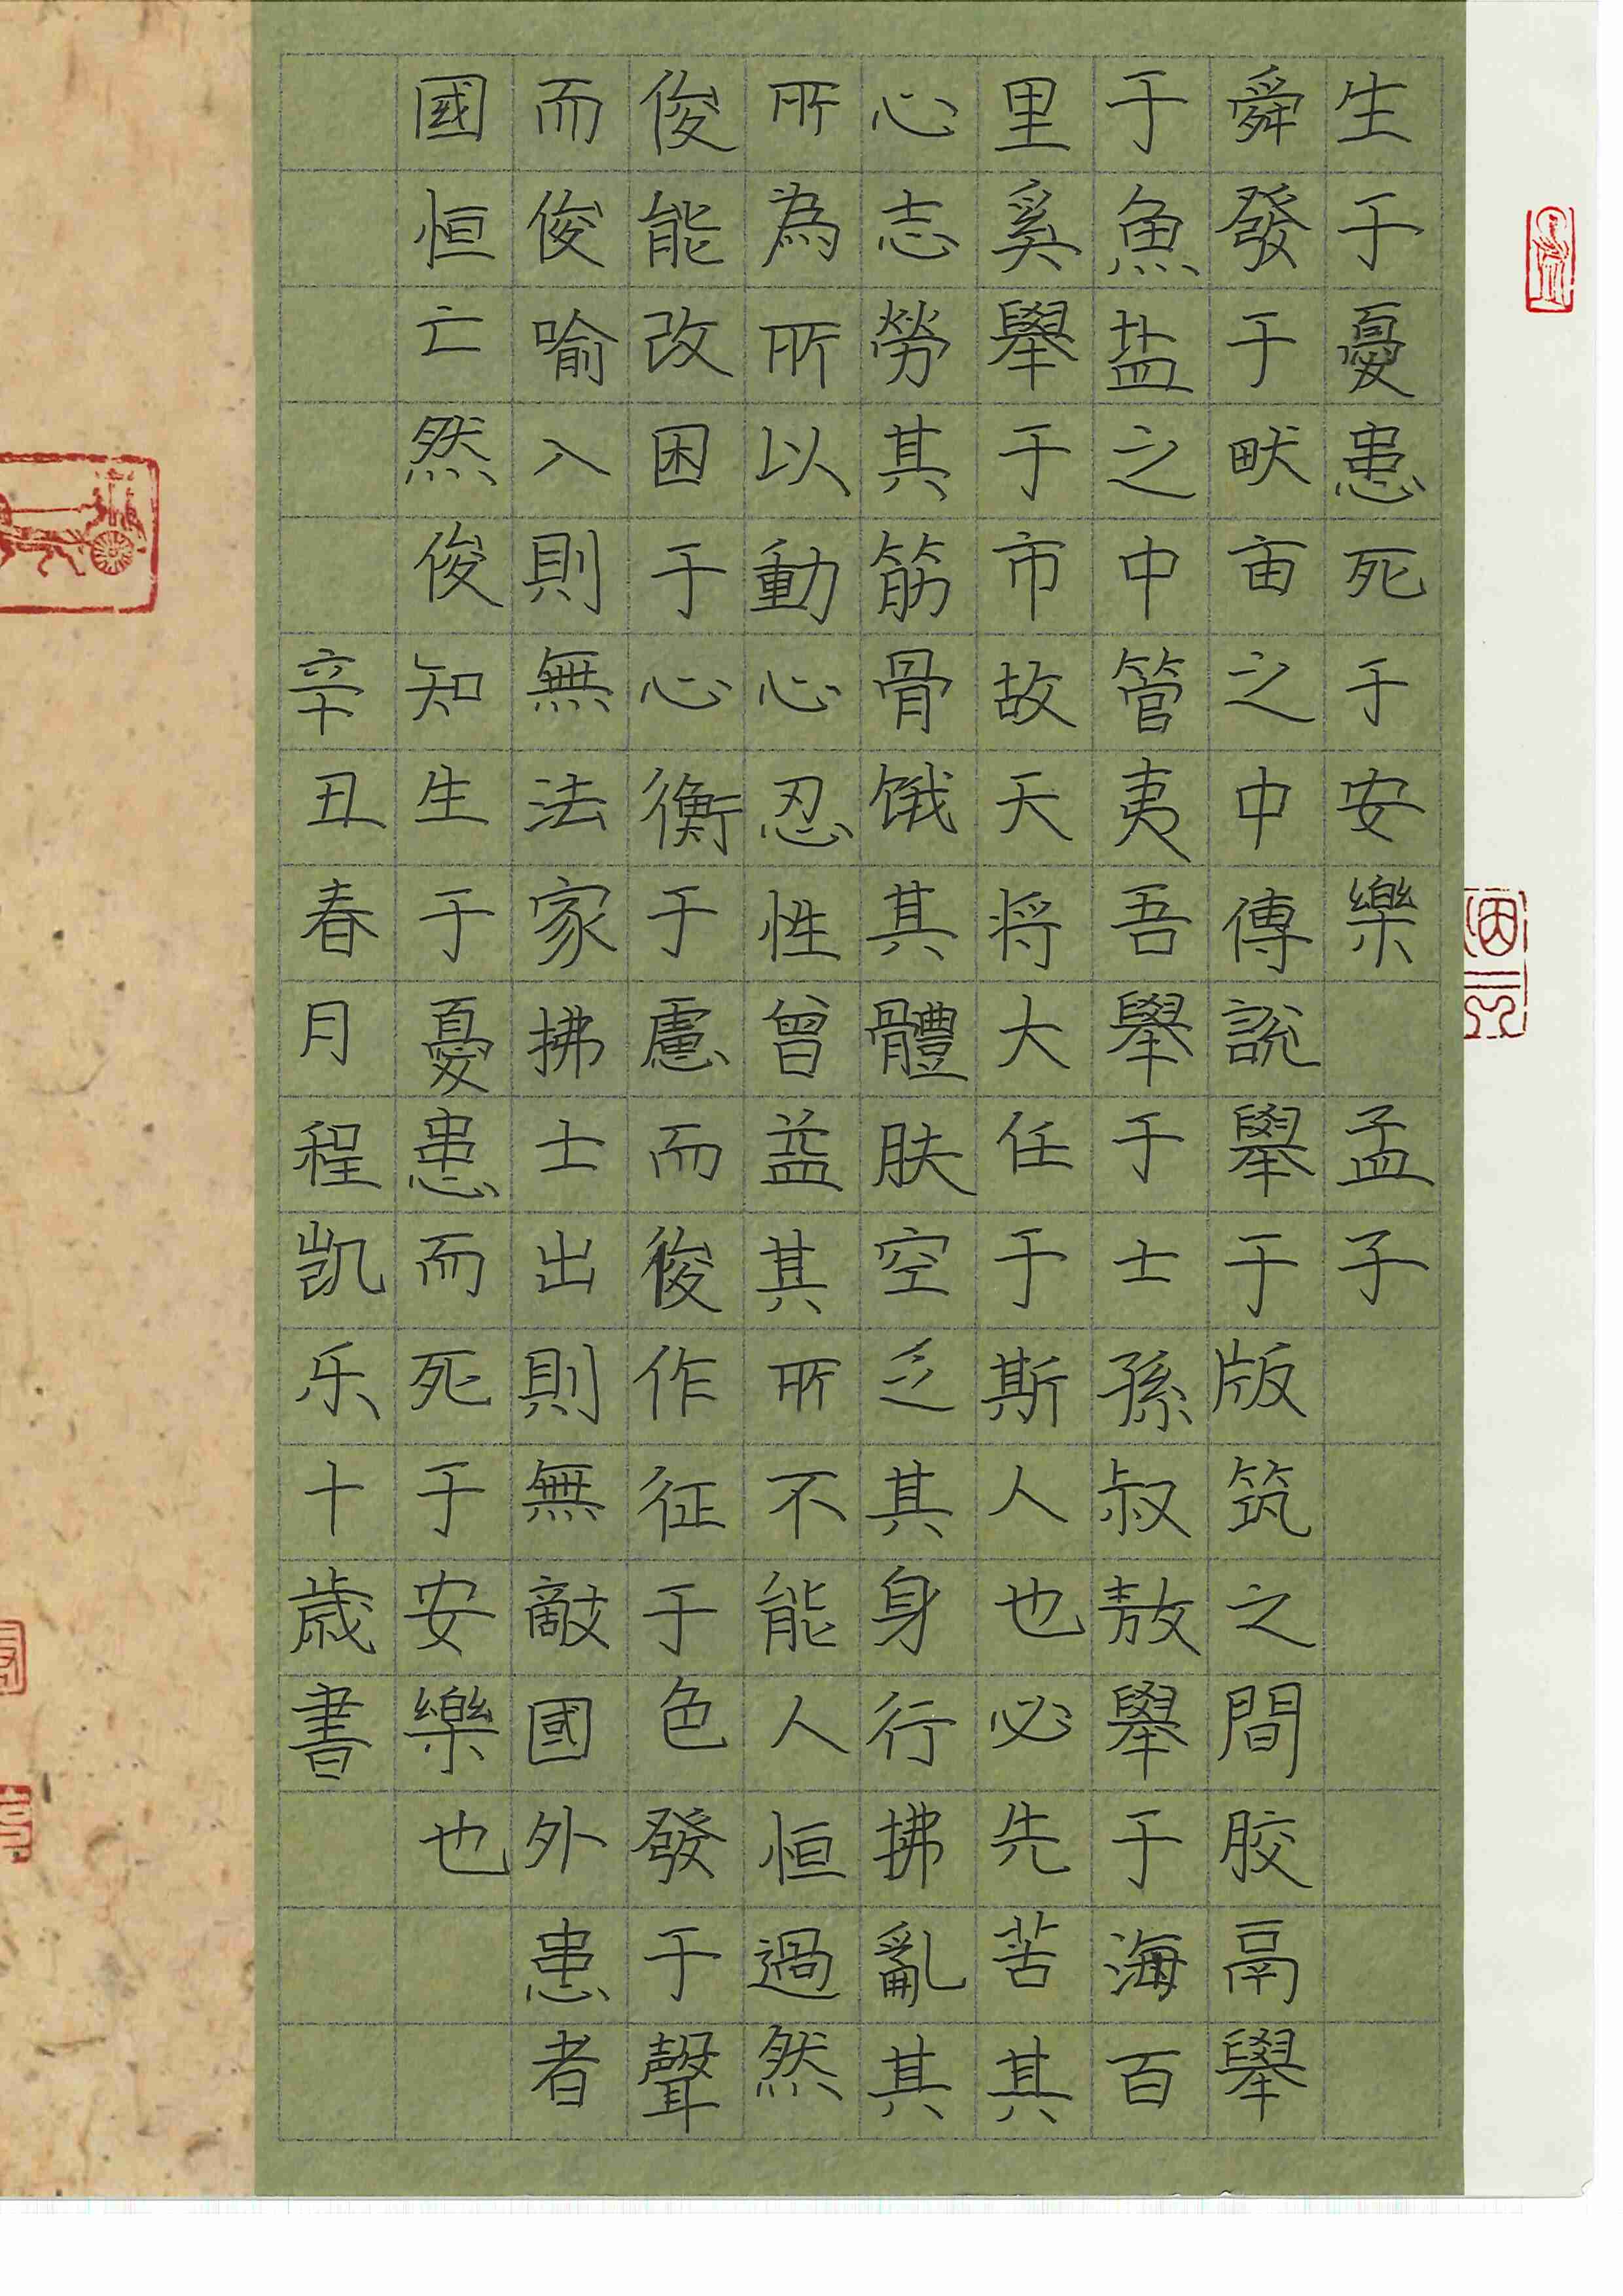 生于憂患死于安樂 孟子
舜發于畎亩之中傳說舉于版筑之間胶鬲舉
于魚盐之中管夷吾舉于士孫叔敖舉于海百
里奚舉于市故天将大任于斯人也必先苦其
心志勞其筋骨饿其體肤空乏其身行拂亂其
所為所以動心忍性曾益其所不能人恒過然
俊能改困于心衡于慮而後作征于色發于聲
而俊喻入則無法家拂士出則無敵國外患者
國恒亡然俊知生于憂患而死于安樂也
辛丑春月程凯乐十歲書